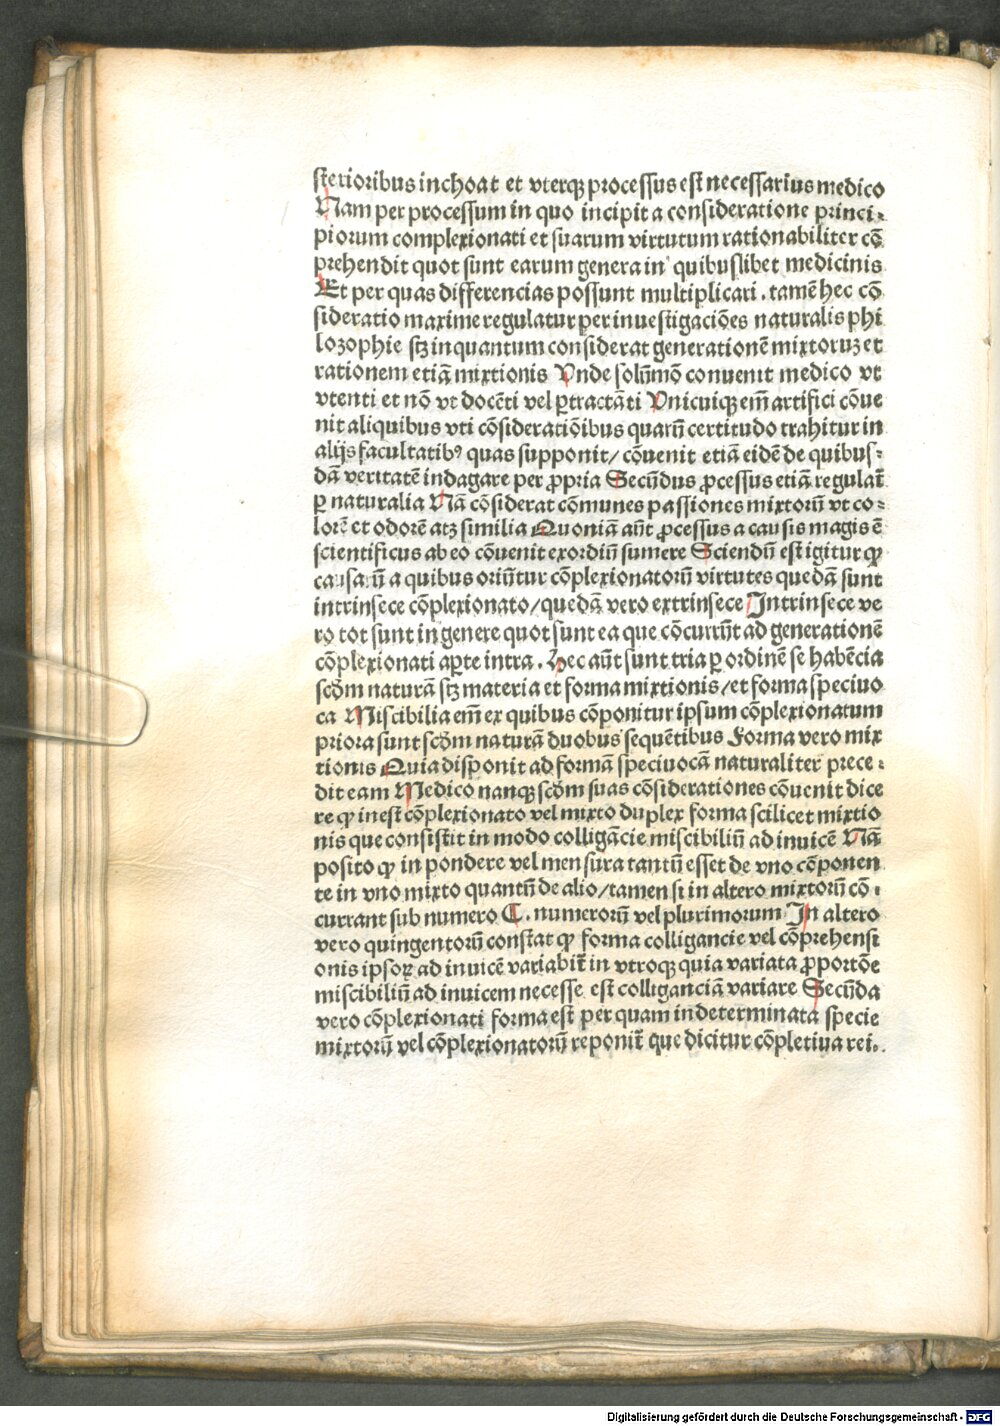 sterioribus inchoat et vterqꝫ processus est necessarius medico
Nam per processum in quo incipit a consideratione princi⸗
piorum complexionati et suarum virtutum rationabiliter cō
prehendit quot sunt earum genera in quibuslibet medicinis
Et per quas differencias possunt multiplicari . tamē hec cō
sideratio maxime regulatur per inuestigaciōes naturalis phi
lozophie stꝫ inquantum considerat generationē mixtoruꝫ et
rationem etiā mixtionis Vnde solūmō conuenit medico vt
vtenti et nō vt docēti vel ꝑtractāti Vnicuiqꝫ em̄ artifici cōue
nit aliquibus vti cōsideratiōibus quarū certitudo trahitur in
alijs facultatibꝰ quas supponit/ cōuenit etiā eidē de quibus⸗
dā veritatē indagare per ꝓpria Secūdus ꝓcessus etiā regulat̄
ꝑ naturalia Nā cōsiderat cōmunes passiones mixtorū vt co⸗
lorē et odorē atꝫ similia Quoniā aūt ꝓcessus a causis magis ē
scientificus ab eo cōuenit exordiū sumere Sciendū est igitur ꝙ
causarū a quibus oriūtur cōplexionatorū virtutes quedā sunt
intrinsece cōplexionato/quedā vero extrinsece Intrinsece ve
ro tot sunt in genere quot sunt ea que cōcurrūt ad generationē
cōplexionati aꝑte intra . Hec aūt sunt tria ꝑ ordinē se habēcia
scd̄m naturā stꝫ materia et forma mixtionis/et forma speciuo
ca Miscibilia em̄ ex quibus cōponitur ipsum cōplexionatum
priora sunt scd̄m naturā duobus sequētibus Forma vero mix
tionis Quia disponit ad formā speciuocā naturaliter prece⸗
dit eam Medico nanqꝫ scd̄m suas cōsiderationes cōuenit dice
re ꝙ inest cōplexionato vel mixto duplex forma scilicet mixtio
nis que consistit in modo colligācie miscibiliū ad inuicē Nā
posito ꝙ in pondere vel mensura tantū esset de vno cōponen
te in vno mixto quantū de alio/tamen si in altero mixtorū cō⸗
currant sub numero C. numerorū vel plurimorum In altero
vero quingentorū constat ꝙ forma colligancie vel cōprehensi
onis ipsoꝝ ad inuicē variabit̄ in vtroqꝫ quia variata ꝓportōe
miscibiliū ad inuicem necesse est colliganciā variare Secūda
vero cōplexionati forma est per quam in determinata specie
mixtorū vel cōplexionatorū reponit̄ que dicitur cōpletiua rei.
Digitalisierung gefördert durch die Deutsche Forschungsgemeinschaft - DFG